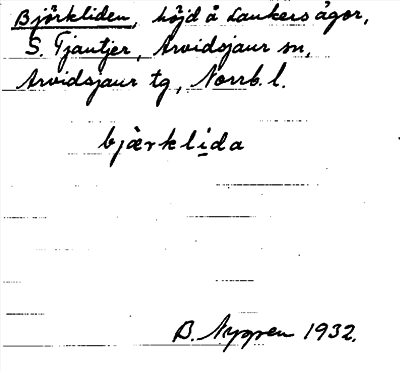 Björkliden, höjd å Lankers ägor,
S. Tjautjer, Arvidsjaur sn,
Arvidsjaur tg, Norrb. l.
bjærklida
B. Nygren 1932.